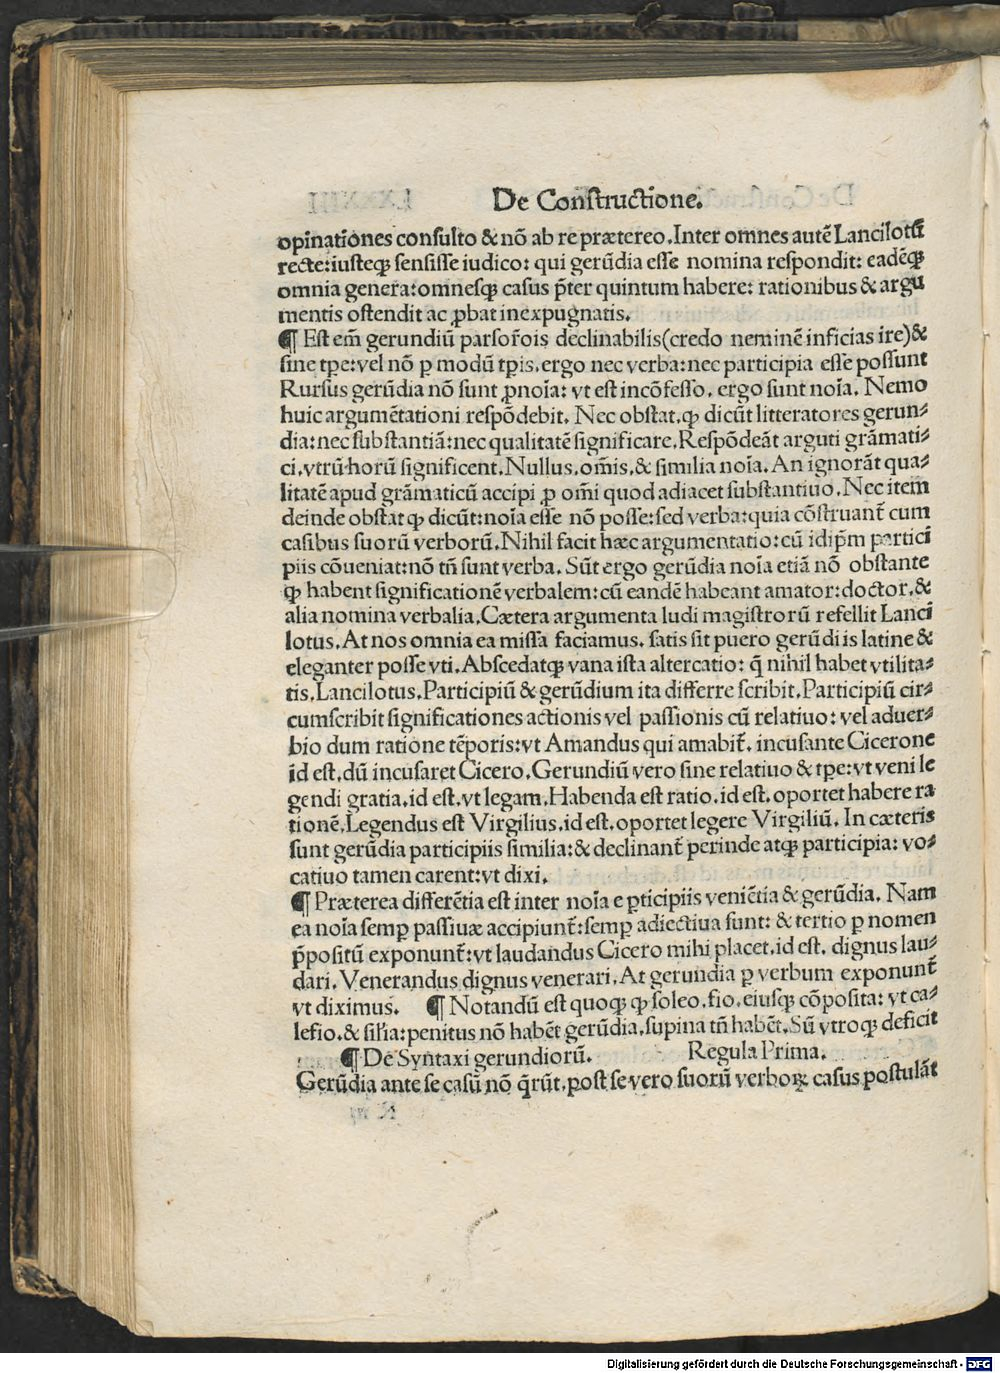 De Constructione.
opinationes consulto & nō ab re prætereo. Inter omnes autē Lancilotū
recte: iusteq̄ sensisse iudico: qui gerūdia esse nomina respondit: eadēq̄
omnia genera: omnesq̄ casus p̄ter quintum habere: rationibus & argu
mentis ostendit ac ꝓbat inexpugnatis.
¶ Est em̄ gerundiū pars or̄ois declinabilis (credo neminē inficias ire) &
sine tp̄e: vel nō p modū tp̄is. ergo nec verba: nec participia esse possunt
Rursus gerūdia nō sunt ꝓnoīa: vt est incōfesso. ergo sunt noīa. Nemo
huic argumētationi respōdebit. Nec obstat. ꝙ dicūt litteratores gerun⸗
dia: nec substantiā: nec qualitatē significare. Respōdeāt arguti grāmati⸗
ci. vtrū horū significent. Nullus. om̄is. & similia noīa. An ignorāt qua⸗
litatē apud grāmaticū accipi ꝓ om̄i quod adiacet substantiuo. Nec item
deinde obstat ꝙ dicūt: noīa esse nō posse: sed verba: quia cōstruant̄ cum
casibus suorū verborū. Nihil facit hæc argumentatio: cū idip̄m partici
piis cōueniat: nō tn̄ sunt verba. Sūt ergo gerūdia noīa etiā nō obstante
ꝙ habent significationē verbalem: cū eandē habeant amator: doctor. &
alia nomina verbalia. Cætera argumenta ludi magistrorū refellit Lanci
lotus. At nos omnia ea missa faciamus. satis sit puero gerūdiis latine &
eleganter posse vti. Abscedatq̄ vana ista altercatio: q̄ nihil habet vtilita⸗
tis. Lancilotus. Participiū & gerūdium ita differre scribit. Participiū cir⸗
cumscribit significationes actionis vel passionis cū relatiuo: vel aduer⸗
bio dum ratione tēporis: vt Amandus qui amabit̄. incusante Cicerone
id est. dū incusaret Cicero. Gerundiū vero sine relatiuo & tp̄e: vt veni le
gendi gratia. id est. vt legam. Habenda est ratio. id est. oportet habere ra
tionē. Legendus est Virgilius. id est. oportet legere Virgiliū. In cæteris
sunt gerūdia participiis similia: & declinant̄ perinde atq̄ participia: vo⸗
catiuo tamen carent: vt dixi.
¶ Præterea differētia est inter noīa e pticipiis veniētia & gerūdia. Nam
ea noīa semꝑ passiuæ accipiunt̄: semꝑ adiectiua sunt: & tertio p nomen
p̄positū exponunt̄: vt laudandus Cicero mihi placet. id est. dignus lau⸗
dari. Venerandus dignus venerari. At gerundia p verbum exponunt̄
vt diximus. ¶ Notandū est quoq̄ ꝙ soleo. fio. eiusq̄ cōposita: vt ca⸗
lefio. & sil̄ia: penitus nō habēt gerūdia. supina tn̄ habēt. Sū vtroq̄ deficit
¶ De Syntaxi gerundiorū. Regula Prima.
Gerūdia ante se casū nō q̄rūt. post se vero suorū verboꝝ casus postulāt
Digitalisierung gefördert durch die Deutsche Forschungsgemeinschaft - DFG